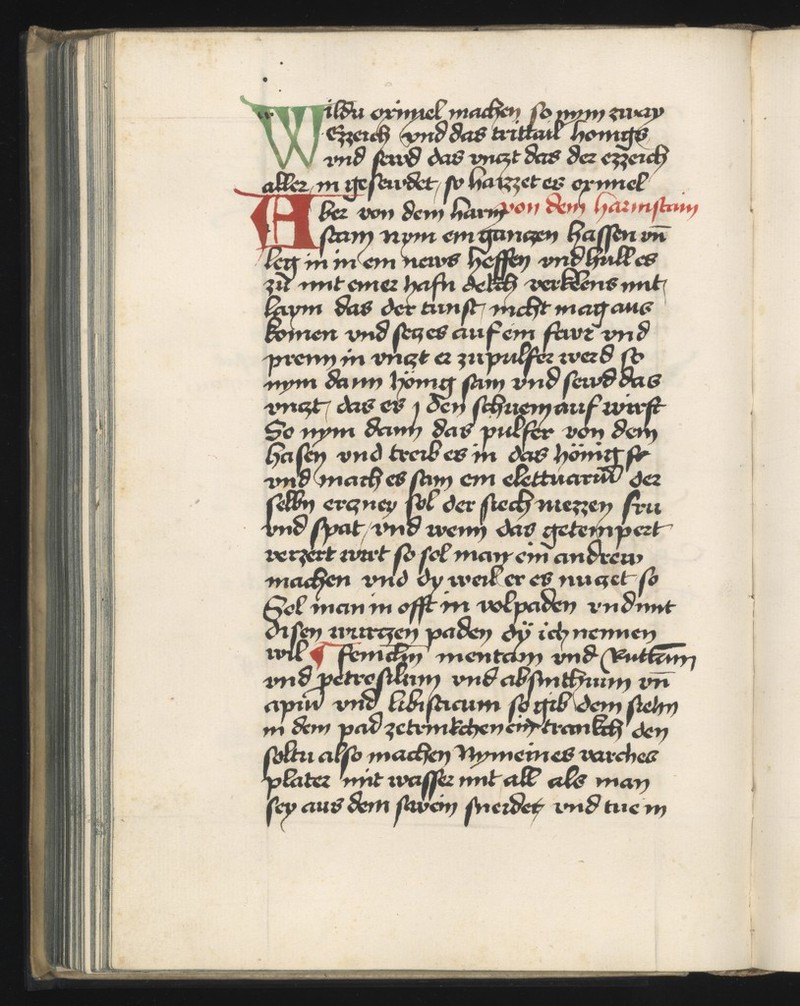 Wildu oximel machen so nym zway
Ezzeich vnd das trittail honigs
vnd sewd das vnczt das der ezzeich
aller in gesewdet so haizzet es oximel
Aber von dem harn von dem harmstain
stain Nym ein ganczen hassen vn̄
leg in in ein news heffen vnd hull es
zu mit einer hafn dekch verklens mit
laym das der tunst nicht mag aus
komen vnd secz es auf ein fewr vnd
prenn in vnczt er zu pulfer werd so
nym dann hönig sam vnd sewd das
vnczt das es j den schuem auf wirft
So nym dann das pulfer von dem
hasen vnd treib es in das hönig
vnd mach es sam ein elettuariū der
selbn erczney sol der siech niezzen fru
vnd spat vnd wenn das getempert
verzert wirt so sol man ein andrew
machen vnd dy weil er es nuczet so
Sol man in offt in volpaden vnd mit
disen wurczen paden dÿ ich nennen
wil ¶ fenichin mentam vnd Ruttam
vnd petrosilum vnd absinthium vn̄
apiū vnd libisticum so gib dem siehn
in dem pad zetrinkchen ein trankch den
soltu also machen Nym eines varches
plater mit wasser mit all als man
sey aus dem swein sneidet vnd tue in